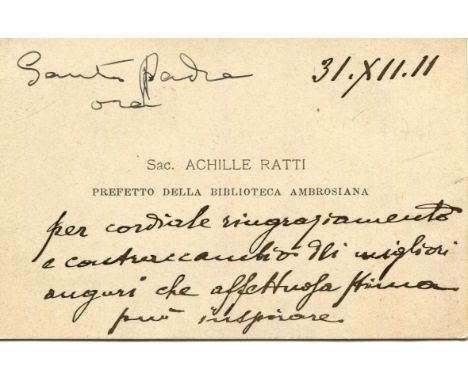 Santo Padre
ora
31.XII.11
Sac. ACHILLE RATTI
PREFETTO DELLA BIBLIOTECA AMBROSIANA
per cordiale ringraziamento
e contraccambio dei migliori
auguri che affettuosa stima
può inspirare.